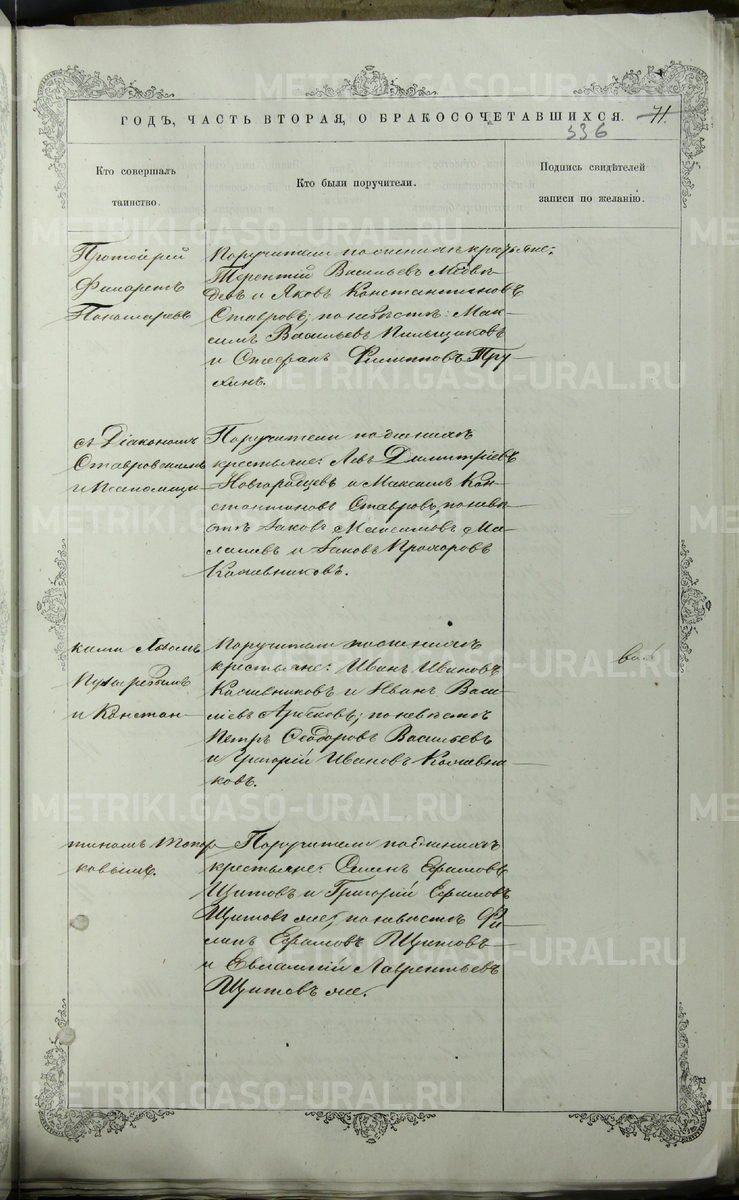 ГОДЪ, ЧАСТЬ ВТОРАЯ, О БРАКОСОЧЕТАВШИХСЯ.
71.
336
Кто совершалъ
таинство.
Кто были поручители.
Подпись свидѣтелей
записи по желанію.
Протоіерей
Филаретъ
Пономаревъ
Поручители по женихѣ крестьяне:
Терентій Васильевъ Медвѣ-
девъ и Яковъ Константиновъ
Ставровъ; по невѣстѣ: Мак-
симъ Васильевъ Пильщиковъ
и Стефанъ Филипповъ Тру-
хинъ.
съ Діакономъ
Ставровскимъ
и Псаломщи-
Поручители по женихѣ
крестьяне: Левъ Димитріевъ
Новгородцевъ и Максимъ Кон-
стантиновъ Ставровъ, по невѣ-
стѣ Іаковъ Максимовъ Ма-
лышевъ и Іаковъ Прохоровъ
Кожевниковъ.
ками
и Констан-
Поручители по женихѣ
крестьяне: Иванъ Ивановъ
Кожевниковъ и Иванъ Васи-
льевъ; по невѣстѣ
Петръ Ѳеодоровъ Васильевъ
и Григорій Ивановъ Кожевни-
ковъ.
тиномъ Топор-
ковымъ.
Поручители по женихѣ
крестьяне: Семенъ Ефимовъ
Щитовъ и Григорій Ефимовъ
Щитовъ же, по невѣстѣ Фи-
липъ Ефимовъ Щитовъ
и Евлампій Лаврентьевъ
Щитовъ же.
METRIKI.GASO-URAL.RU